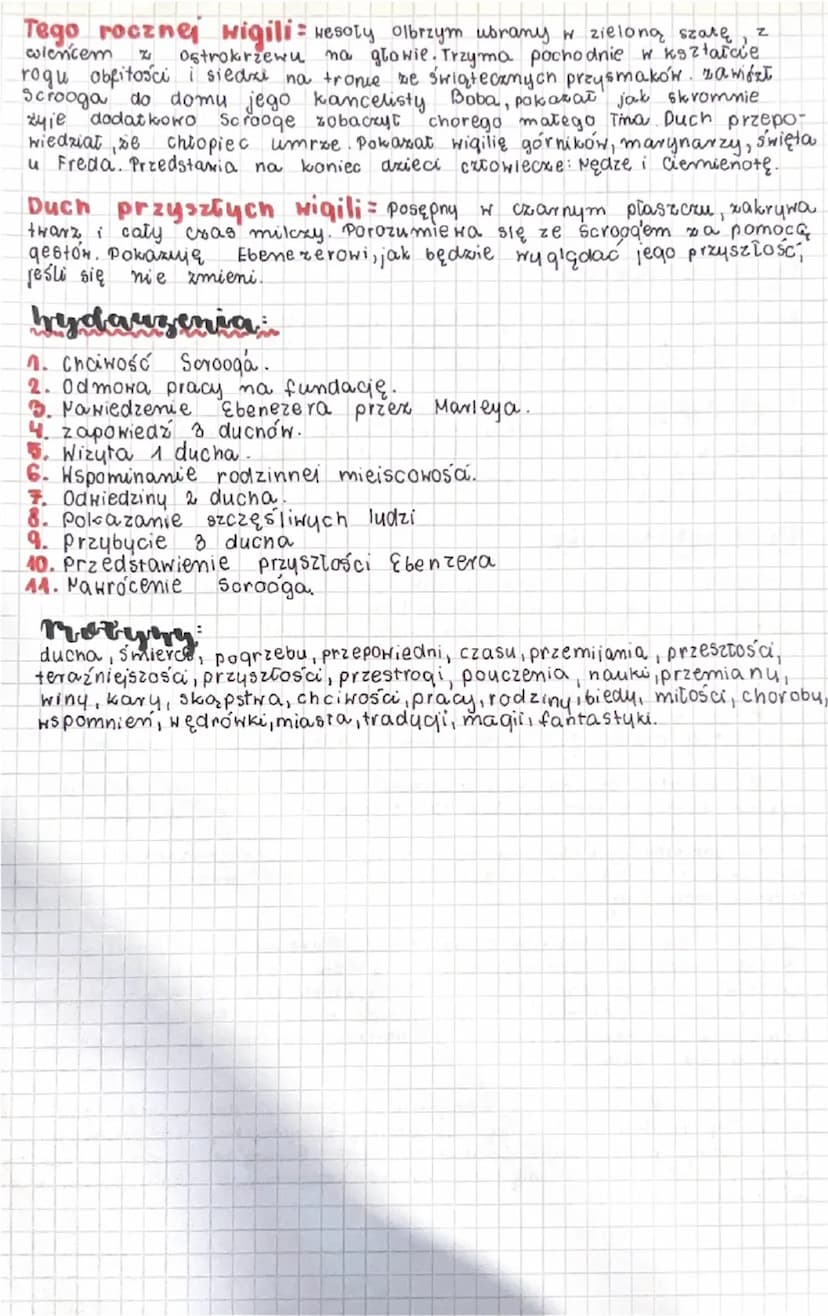 Tego rocznej wigili = wesoły olbrzym ubrany w zieloną szatę, z
wieńcem z ostrokrzewu na głowie. Trzyma pochodnie w kształcie
rogu obfitości i siedzi na tronie ze świątecznych przysmaków. zawiózł
Scrooga do domu jego kancelisty Boba, pokazał jak skromnie
żyje dodatkowo Scrooge zobaczył chorego małego Tima. Duch przepo-
wiedział, że chłopiec umrze. Pokazał wigilię górników, marynarzy, święta
u Freda. Przedstawia na koniec dzieci człowiecze: Nędze i Ciemienotę.
Duch przyszłych wigili = posępny w czarnym płaszczu, zakrywa
twarz i cały czas milczy. Porozumiewa się ze Scroog'em za pomocą
gestów. Pokazują Ebenezerowi, jak będzie wyglądać jego przyszłość,
jeśli się nie zmieni.
Wydarzenia:
1. Chciwość Scrooga.
2. Odmowa pracy na fundację.
3. Nawiedzenie Ebenezera przez Marleya.
4. zapowiedź 3 duchów.
5. Wizyta 1 ducha.
6. Wspominanie rodzinnej miejscowości.
7. Odwiedziny 2 ducha.
8. Pokazanie szczęśliwych ludzi
9. Przybycie 3 ducha
10. Przedstawienie przyszłości Ebenzera
11. Nawrócenie Scrooga.
Motywy:
ducha, śmierci, pogrzebu, przepowiedni, czasu, przemijania, przeszłości,
teraźniejszości, przyszłości, przestrogi, pouczenia, nauki, przemiany,
winy, kary, skąpstwa, chciwości, pracy, rodziny, biedy, miłości, choroby,
wspomnień, wędrówki, miasta, tradycji, magii, fantastyki.